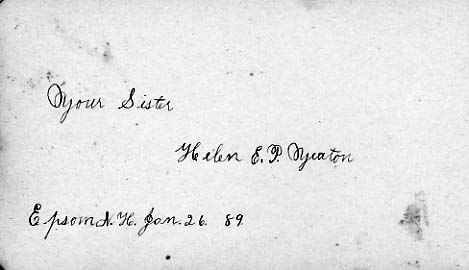 Your Sister
Helen E. P. Yeaton
Epsom N. H. Jan. 26. 89